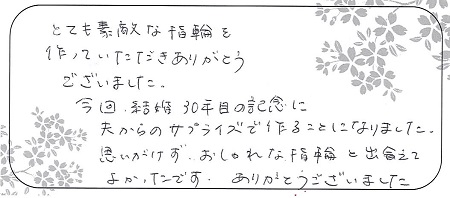 とても素敵な指輪を
作っていただきありがとう
ございました。
今回、結婚30年目の記念に
夫からのサプライズで作ることになりました。
思いがけず、おしゃれな指輪と出会えて
よかったです。ありがとうございました